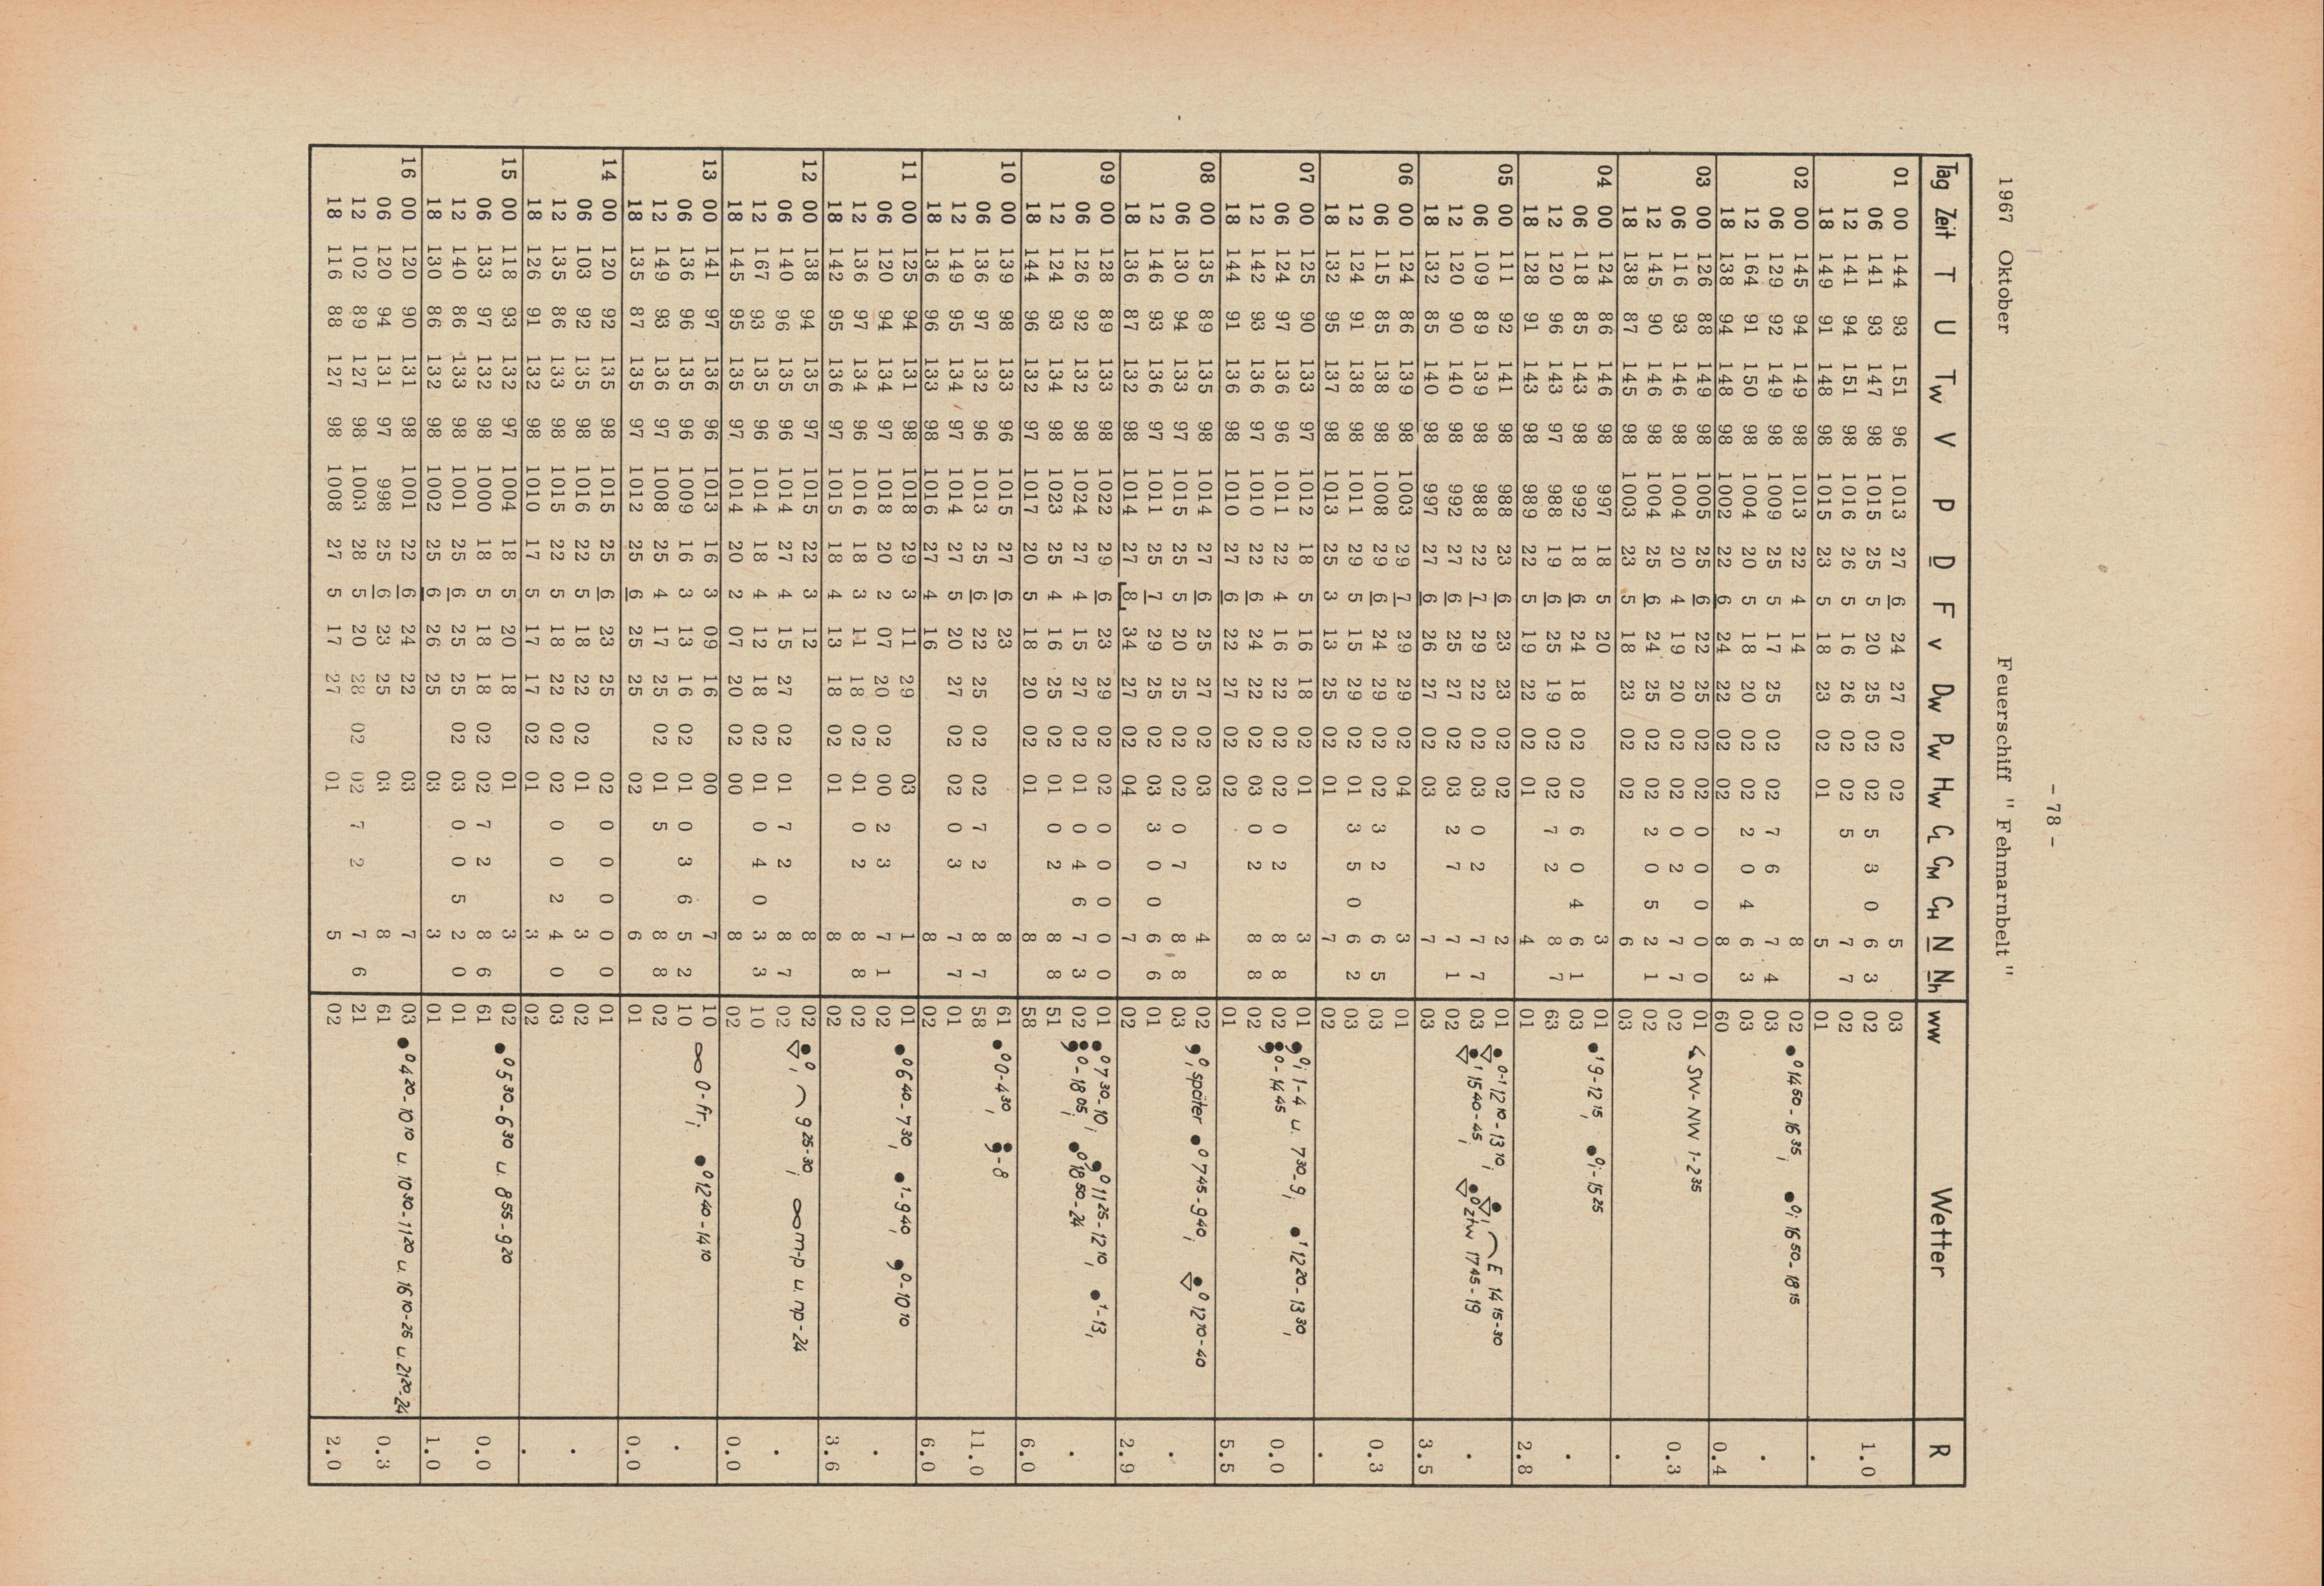 - 78 -
1967 Oktober Feuerschiff " Fehmarnbelt "
Tag Zeit T U Tw V P D F v Dw Pw Hw CL CM CH N Nh ww Wetter R
01 00 144 93 151 96 1013 27 6 24 27 02 02 5 03
06 141 93 147 98 1015 25 5 20 25 02 02 5 3 0 6 3 02 1.0
12 141 94 151 98 1016 26 5 16 26 02 02 5 7 7 02
18 149 91 148 98 1015 23 5 18 23 02 01 5 01 .
02 00 145 94 149 98 1013 22 4 14 8 02 ●⁰ 14⁵⁰-16³⁵, ●⁰, 16⁵⁰-18¹⁵
06 129 92 149 98 1009 25 5 17 25 02 02 7 6 7 4 03 .
12 164 91 150 98 1004 20 5 18 20 02 02 2 0 4 6 3 03
18 138 94 148 98 1002 22 6 24 22 02 02 8 60 0.4
03 00 126 88 149 98 1005 25 6 22 25 02 02 0 0 0 0 0 01 SW-NW 1-2³⁵
06 116 93 146 98 1004 20 4 19 20 02 02 0 2 7 7 02 0.3
12 145 90 146 98 1004 25 6 24 25 02 02 2 0 5 2 1 02
18 138 87 145 98 1003 23 5 18 23 02 02 6 03 .
04 00 124 86 146 98 997 18 5 20 3 01 ●¹ 9-12¹⁵, ●⁰,-15²⁵
06 118 85 143 98 992 18 6 24 18 02 02 6 0 4 6 1 03 .
12 120 96 143 97 988 19 6 25 19 02 02 7 2 8 7 63
18 128 91 143 98 989 22 5 19 22 02 01 4 01 2.8
05 00 111 92 141 98 988 23 6 23 23 02 02 2 01 ⁰⁻¹ 12¹⁰-13¹⁰, E 14¹⁵-30
06 109 89 139 98 988 22 7 29 22 02 03 0 2 7 7 03 ¹ 15⁴⁰-45, ⁰ ztw 17⁴⁵-19 .
12 120 90 140 98 992 27 6 25 27 02 03 2 7 7 1 02
18 132 85 140 98 997 27 6 26 27 02 03 7 03 3.5
06 00 124 86 139 98 1003 29 7 29 29 02 04 3 01
06 115 85 138 98 1008 29 6 24 29 02 02 3 2 6 5 03 0.3
12 124 91 138 98 1011 29 5 15 29 02 01 3 5 0 6 2 03
18 132 95 137 98 1013 25 3 13 25 02 01 7 02 .
07 00 125 90 133 97 1012 18 5 16 18 02 01 3 01 ⁰, 1-4 u. 7³⁰-9, ●¹ 12²⁰-13³⁰,
06 124 97 136 96 1011 22 4 16 22 02 02 0 2 8 8 02 ⁰-14⁴⁵ 0.0
12 142 93 136 97 1010 22 6 24 22 02 03 0 2 8 8 02
18 144 91 136 98 1010 27 6 22 27 02 02 01 5.5
08 00 135 89 135 98 1014 27 6 25 27 02 03 4 02 ⁰, später ●⁰ 7⁴⁵-9⁴⁰, ⁰ 12¹⁰-40
06 130 94 133 97 1015 25 5 20 25 02 02 0 7 8 8 03 .
12 146 93 136 97 1011 25 7 29 25 02 03 3 0 0 6 6 01
18 136 87 132 98 1014 27 8 34 27 02 04 7 02 2.9
09 00 128 89 133 98 1022 29 6 23 29 02 02 0 0 0 0 0 01 ●⁰ 7³⁰-10, ⁰ 11²⁵-12¹⁰, ●¹-13,
06 126 92 132 98 1024 27 4 15 27 02 01 0 4 6 7 3 02 ⁰-18⁰⁵, ●⁰ 18⁵⁰-24 .
12 124 93 134 98 1023 25 4 16 25 02 01 0 2 8 8 51
18 144 96 132 97 1017 20 5 18 20 02 01 8 58 6.0
10 00 139 98 133 96 1015 27 6 23 8 61 ●⁰ 0-4³⁰, -8
06 136 97 132 96 1013 25 6 22 25 02 02 7 2 8 7 58 11.0
12 149 95 134 97 1014 27 5 20 27 02 02 0 3 7 7 01
18 136 96 133 98 1016 27 4 16 8 02 6.0
11 00 125 94 131 98 1018 29 3 11 29 03 1 01 ●⁰ 6⁴⁰-7³⁰, ●¹-9⁴⁰, ⁰-10¹⁰
06 120 94 134 97 1018 20 2 07 20 02 00 2 3 7 1 02 .
12 136 97 134 96 1016 18 3 11 18 02 01 0 2 8 8 02
18 142 95 136 97 1015 18 4 13 18 02 01 8 02 3.6
12 00 138 94 135 97 1015 22 3 12 8 02 ⁰, 9²⁵-30, ∞ m-p u. np-24
06 140 96 135 96 1014 27 4 15 27 02 01 7 2 8 7 02 .
12 167 93 135 96 1014 18 4 12 18 02 01 0 4 0 3 3 10
18 145 95 135 97 1014 20 2 07 20 02 00 8 02 0.0
13 00 141 97 136 96 1013 16 3 09 16 00 7 10 ∞ 0-fr, ●⁰ 12⁴⁰-14¹⁰
06 136 96 135 96 1009 16 3 13 16 02 01 0 3 6 5 2 10 .
12 149 93 136 97 1008 25 4 17 25 02 01 5 8 8 02
18 135 87 135 97 1012 25 6 25 25 02 6 01 0.0
14 00 120 92 135 98 1015 25 6 23 25 02 0 0 0 0 0 01
06 103 92 135 98 1016 22 5 18 22 02 01 3 02 .
12 135 86 133 98 1015 22 5 18 22 02 02 0 0 2 4 0 03
18 126 91 132 98 1010 17 5 17 17 02 01 3 02 .
15 00 118 93 132 97 1004 18 5 20 18 01 3 02 ●⁰ 5³⁰-6³⁰ u. 8⁵⁵-9²⁰
06 133 97 132 98 1000 18 5 18 18 02 02 7 2 8 6 61 0.0
12 140 86 133 98 1001 25 6 25 25 02 03 0 0 5 2 0 01
18 130 86 132 98 1002 25 6 26 25 03 3 01 1.0
16 00 120 90 131 98 1001 22 6 24 22 03 7 03 ●⁰ 4²⁰-10¹⁰ u. 10³⁰-11²⁰ u. 16¹⁰-25 u. 21²⁰-24
06 120 94 131 97 998 25 6 23 25 03 8 61 0.3
12 102 89 127 98 1003 28 5 20 28 02 02 7 2 7 6 21
18 116 88 127 98 1008 27 5 17 27 01 5 02 2.0